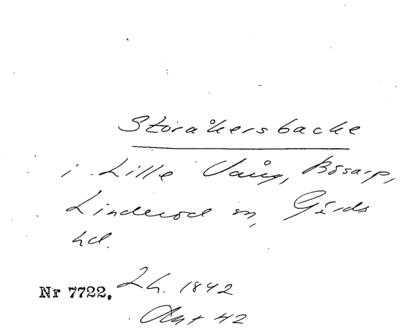 Storåkersbacke
i Lille Vång, Bösarp,
Linderöd sn, Gärds
hd.
Nr 7722. Lh. 1842
Akt 42